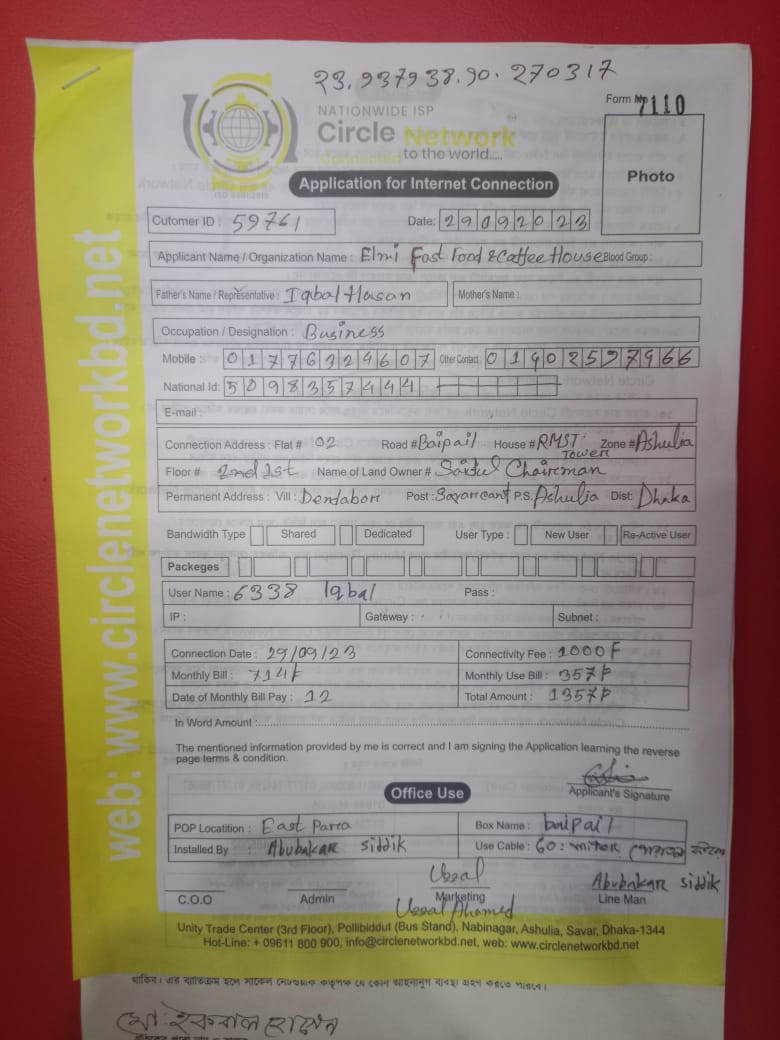 23.937938.90.270317
Form No 7110
NATIONWIDE ISP
Circle Network
Connected to the world.....
ISO 9001:2015
Photo
Application for Internet Connection
Cutomer ID : 59761 Date: 29092023
Applicant Name / Organization Name : Elmi Fast Food & Caffee House Blood Group :
Father's Name / Representative : Iqbal Hasan Mother's Name :
Occupation / Designation : Business
Mobile : 01776324607 Other Contact : 01902597966
National Id: 5098357444
E-mail :
Connection Address : Flat # 02 Road # Baipail House # RMST Tower Zone # Ashulia
Floor # 2nd 1st Name of Land Owner # Saidul Chairman
Permanent Address : Vill : Dendabor Post : P.S. Ashulia Dist: Dhaka
Bandwidth Type Shared Dedicated User Type : New User Re-Active User
Packeges
User Name : 6338 Iqbal Pass :
IP : Gateway : Subnet :
Connection Date : 29/09/23 Connectivity Fee : 1000৳
Monthly Bill : 714৳ Monthly Use Bill : 357৳
Date of Monthly Bill Pay : 12 Total Amount : 1357৳
In Word Amount :
The mentioned information provided by me is correct and I am signing the Application learning the reverse
page terms & condition.
Applicant's Signature
Office Use
POP Locatition : East Para Box Name : baipail
Installed By : Abubakar Siddik Use Cable : 60 :
Uzzal
Abubakar Siddik
C.O.O Admin Marketing Line Man
Uzzal Ahamed
Unity Trade Center (3rd Floor), Pollibiddut (Bus Stand), Nabinagar, Ashulia, Savar, Dhaka-1344
Hot-Line: + 09611 800 900, info@circlenetworkbd.net, web: www.circlenetworkbd.net
web: www.circlenetworkbd.net
থাকিব। এর ব্যতিক্রম হলে সার্কেল নেটওয়ার্ক কর্তৃপক্ষ যে কোন আইনানুগ ব্যবস্থা গ্রহণ করতে পারবে।
মো: ইকবাল হোসেন